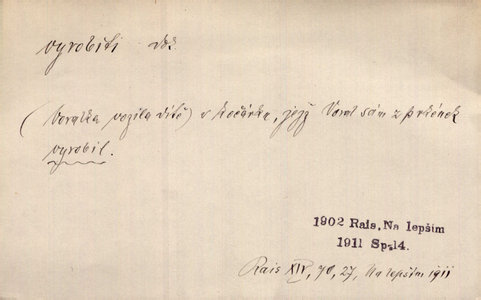 vyrobiti dok.
(Voralka vozila dítě) v kočárku, jejž Voral sám z prkének
vyrobil.
1902 Rais, Na lepším
1911 Sp.14.
Rais XIV, 70, 27, Na lepším 1911